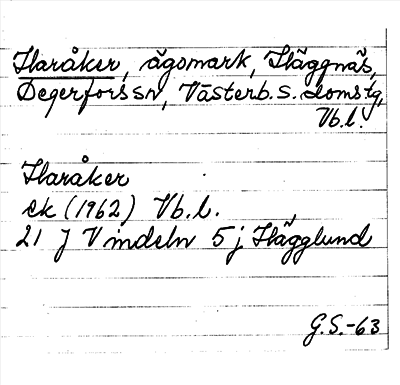 Haråker, ägomark, Häggnäs,
Degerfors sn, Västerb. s. domstg,
Vb. l.
Haråker
ek (1962) Vb. l.
21 J Vindeln 5 j Hägglund
G.S.-63